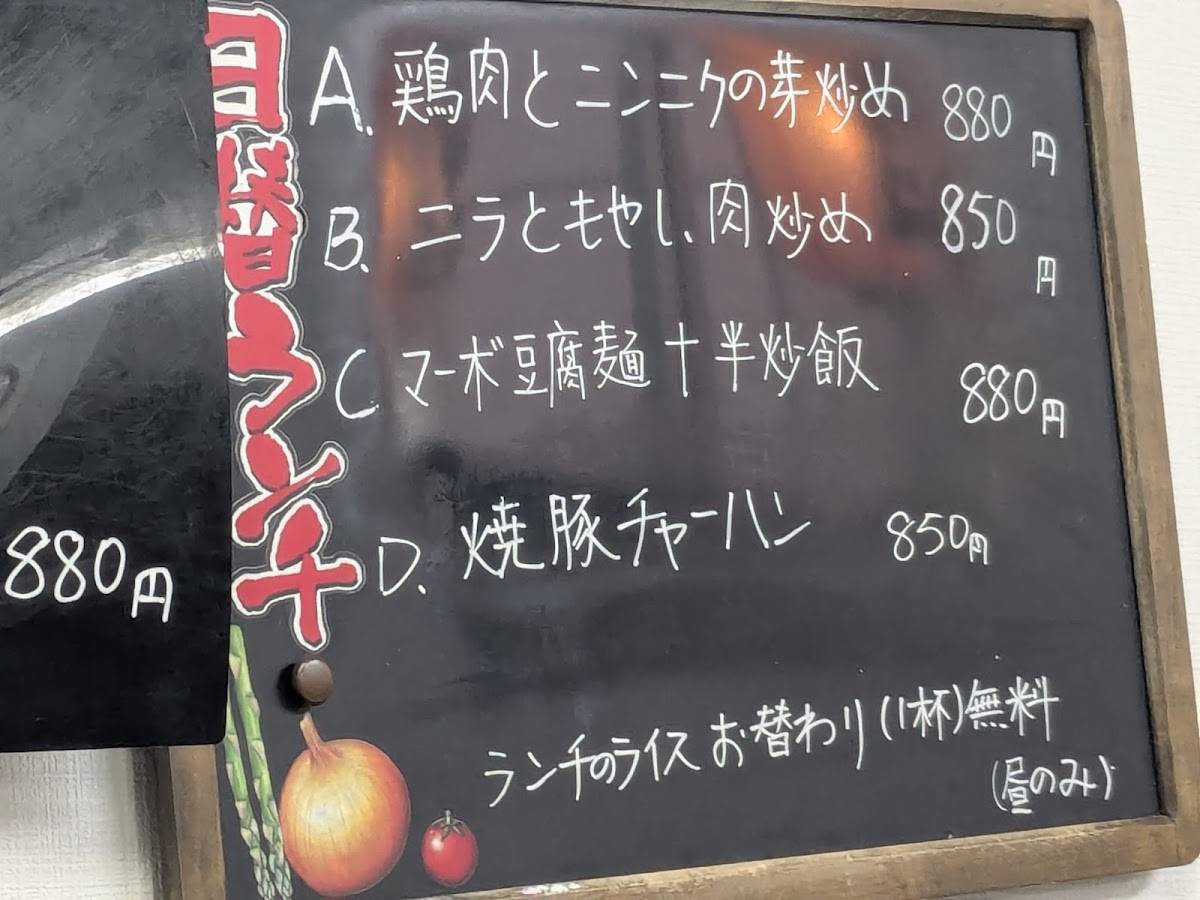 日替ランチ
A. 鶏肉とニンニクの芽炒め 880円
B. ニラともやし、肉炒め 850円
C マーボ豆腐麺十半炒飯 880円
D. 焼豚チャーハン 850円
ランチのライスお替わり(1杯)無料
(昼のみ)
880円